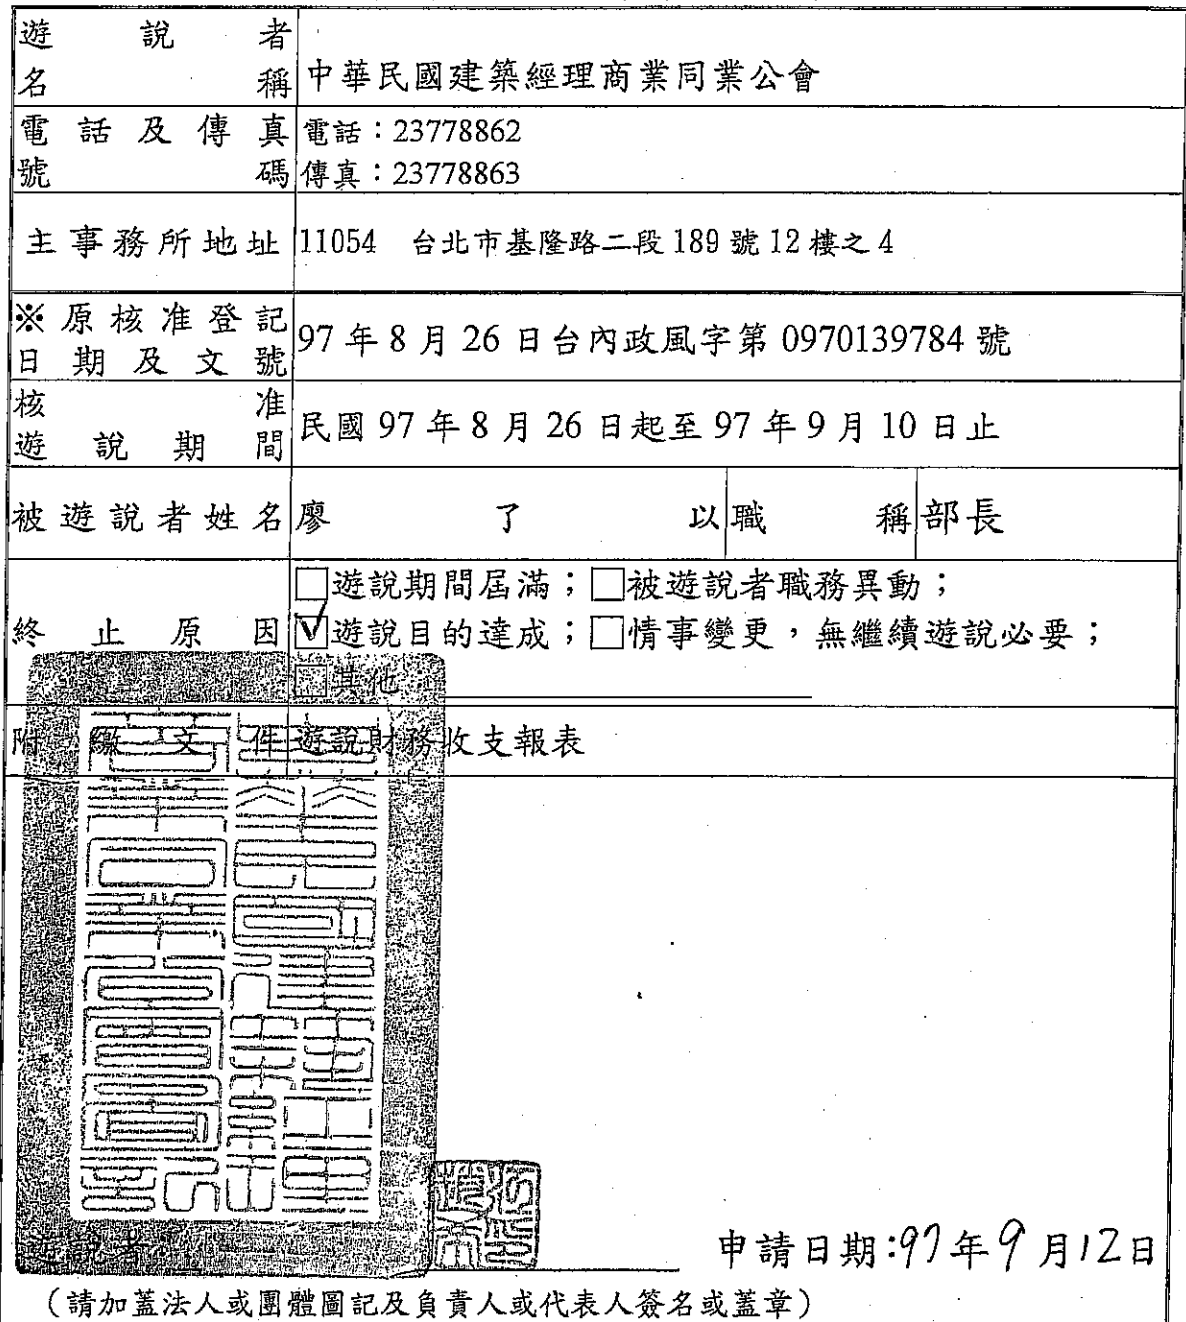 遊說者
名稱
中華民國建築經理商業同業公會
電話及傳真
號碼
電話：23778862
傳真：23778863
主事務所地址
11054 台北市基隆路二段189號12樓之4
※原核准登記
日期及文號
97年8月26日台內政風字第0970139784號
核准
遊說期間
民國97年8月26日起至97年9月10日止
被遊說者姓名 廖了以 職稱 部長
終止原因
□遊說期間屆滿；□被遊說者職務異動；
☑遊說目的達成；□情事變更，無繼續遊說必要；
□其他
附繳文件 遊說財務收支報表
遊說者：
申請日期:97年9月12日
（請加蓋法人或團體圖記及負責人或代表人簽名或蓋章）